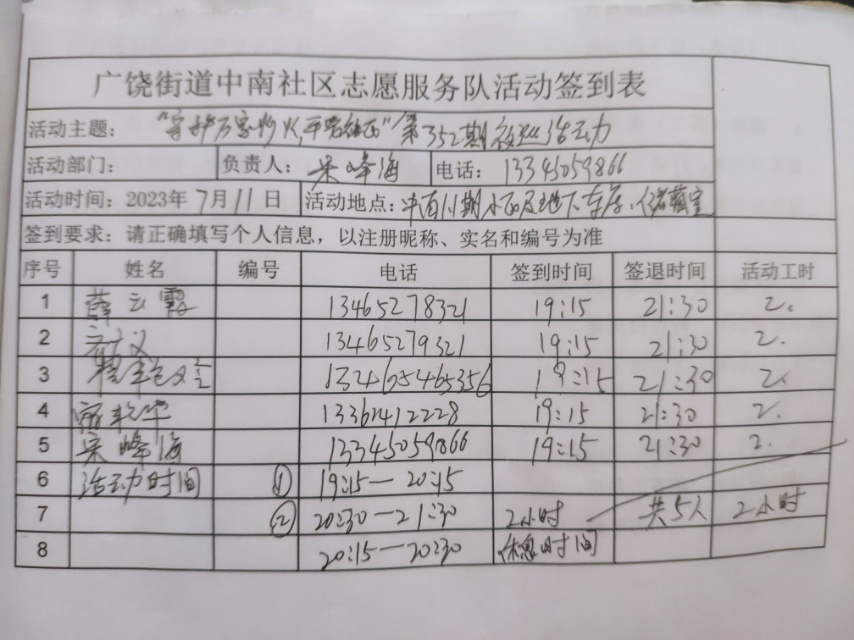 广饶街道中南社区志愿服务队活动签到表
活动主题： "守护万家灯火,平安社区"第352期夜巡活动
活动部门： 负责人： 吴峰海 电话： 13345059866
活动时间：2023年 7月 11 日 活动地点：中南小区及地下车库、储藏室
签到要求：请正确填写个人信息，以注册昵称、实名和编号为准
序号 姓名 编号 电话 签到时间 签退时间 活动工时
1 薛云霞 13465278321 19:15 21:30 2.
2 13465279321 19:15 21:30 2.
3 19:15 21:30 2.
4 13361412228 19:15 21:30 2.
5 吴峰海 13345059866 19:15 21:30 2.
6 活动时间 ① 19:15—20:15
7 ② 20:30—21:30 2小时 共5人 2小时
8 20:15—20:30 休息时间